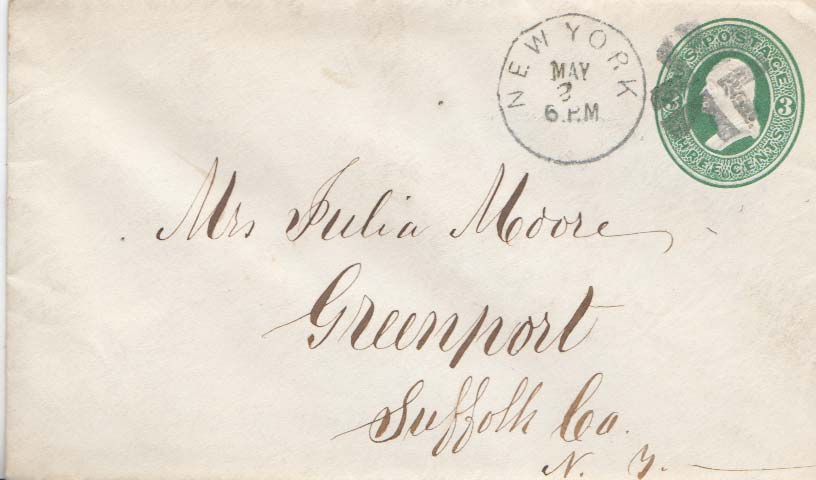 NEW YORK
MAY
3
6 P.M.
U.S. POSTAGE
3 3
THREE CENTS
Mrs Julia Moore
Greenport
Suffolk Co.
N. Y.